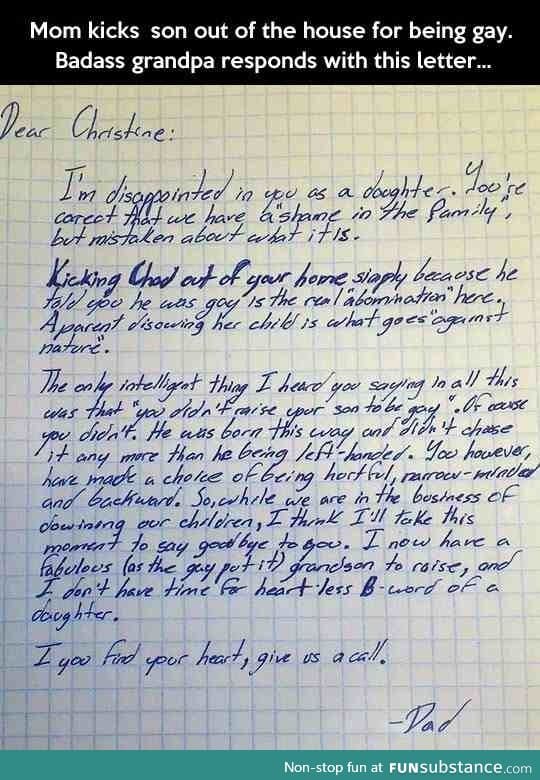 Mom kicks son out of the house for being gay.
Badass grandpa responds with this letter...
Dear Christine:
I'm disappointed in you as a daughter. You're
corect that we have a "shame in the family",
but mistaken about what it is.
Kicking Chad out of your home simply because he
told you he was gay is the real "abomination" here.
A parent disowing her child is what goes "against
nature".
The only intelligent thing I heard you saying in all this
was that "you didn't raise your son to be gay". Of couse
you didn't. He was born this way and didn't choose
it any more than he being left-handed. You however,
have made a choice of being hurtful, narrow-minded
and backward. So, while we are in the business of
dowining our children, I think I'll take this
moment to say goodbye to you. I now have a
fabulous (as the gay put it) grandson to raise, and
I don't have time for heart-less B-word of a
daughter.
I you find your heart, give us a call.
-Dad
Non-stop fun at FUNsubstance.com